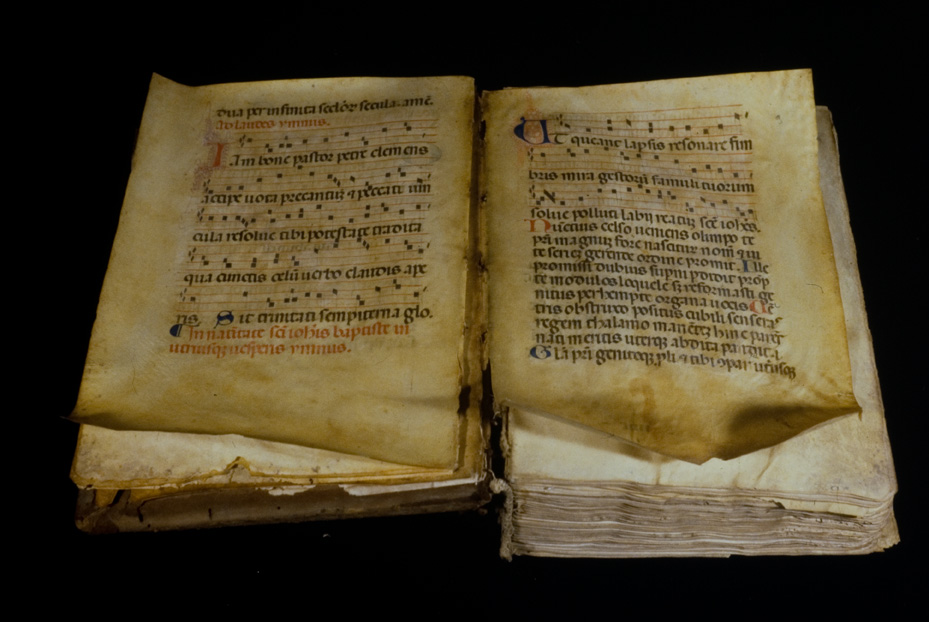 dua per infinita seclor̄ secula. amē.
Ad laudes ymnus.
Iam bone pastor petre clemens
accipe uota precantiū ⁊ peccati uin
cula resolue tibi potestate tradita
qua cunctis celū uerbo claudis ape
ris. Sit trinitati sempiterna glo.
In natiuitate sc̄i ioh̄is baptiste in
utrisq uesperis ymnus.
Ut queant laxis resonare fim
bris mira gestorū famuli tuorum
solue polluti labii reatū sc̄e ioh̄es.
Nuncius celso ueniens olimpo te
pr̄i magnū fore nasciturū nom̄ ⁊ ui
te seriē gerende ordine promit. Ille
promissi dubius supni pdidit prōp
te modulos loquele s; reformasti ge
nitus perhempte organa uocis. Uē
tris obstruso positus cubili senseras
regem thalamo manētē hinc parēs
nati meritis uterq abdita pandit.
Gl̄a pr̄i geniteq; p̄li ⁊ tibi ꝯpar utriusq